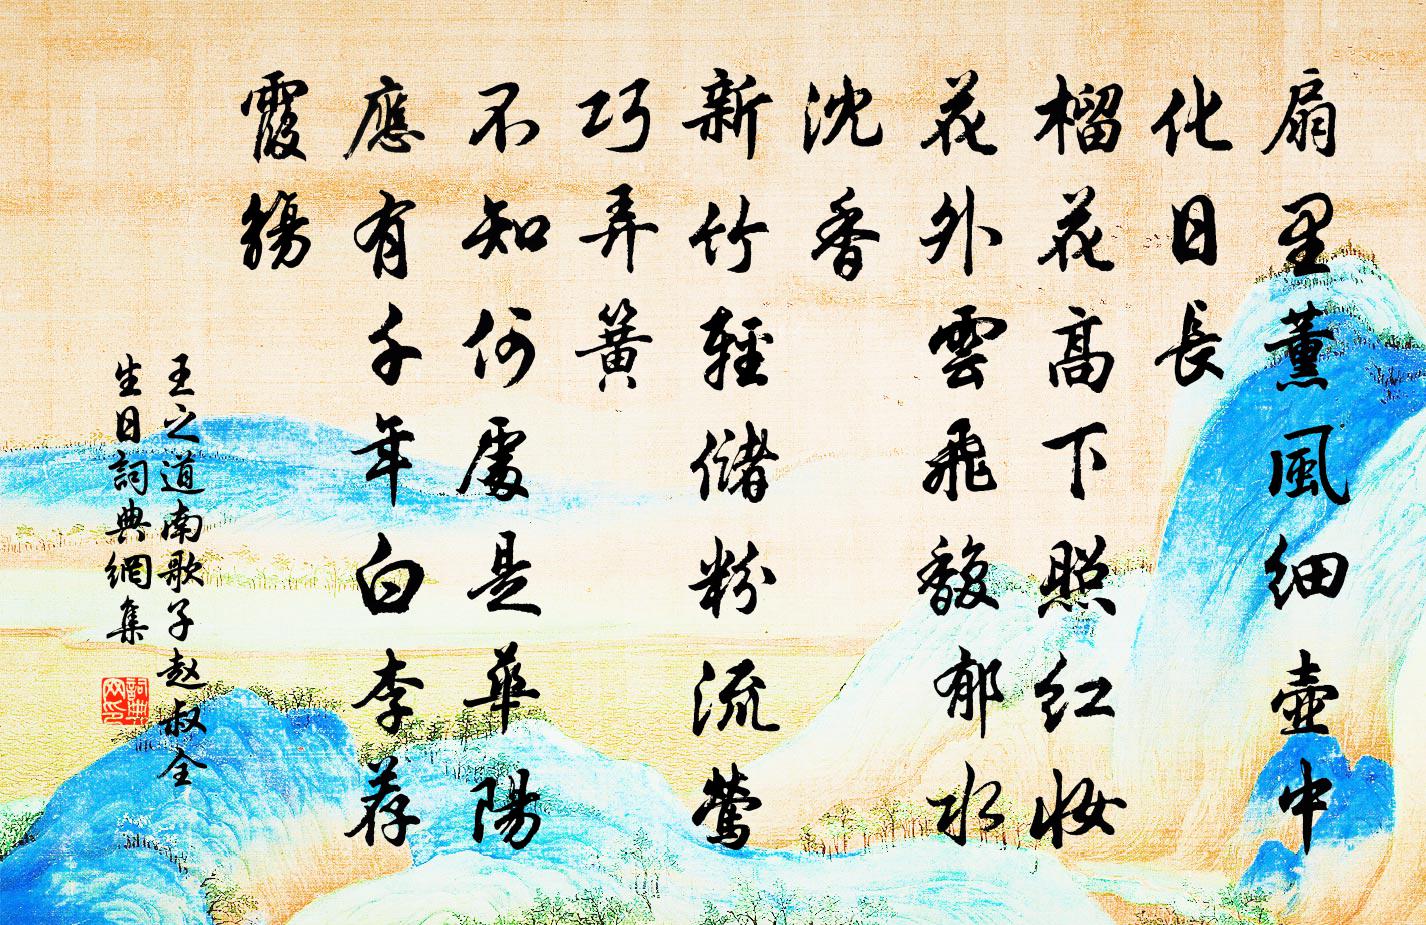 扇里薰風細壺中
化日長
榴花高下照红妆
花外雲飛馥郁水
沈香
新竹輕儲粉流鶯
巧弄簧
不知何處是華陽
應有千年白李荐
霞觴
王之道南歌子赵叔全
生日詞典網集
詞典
网印